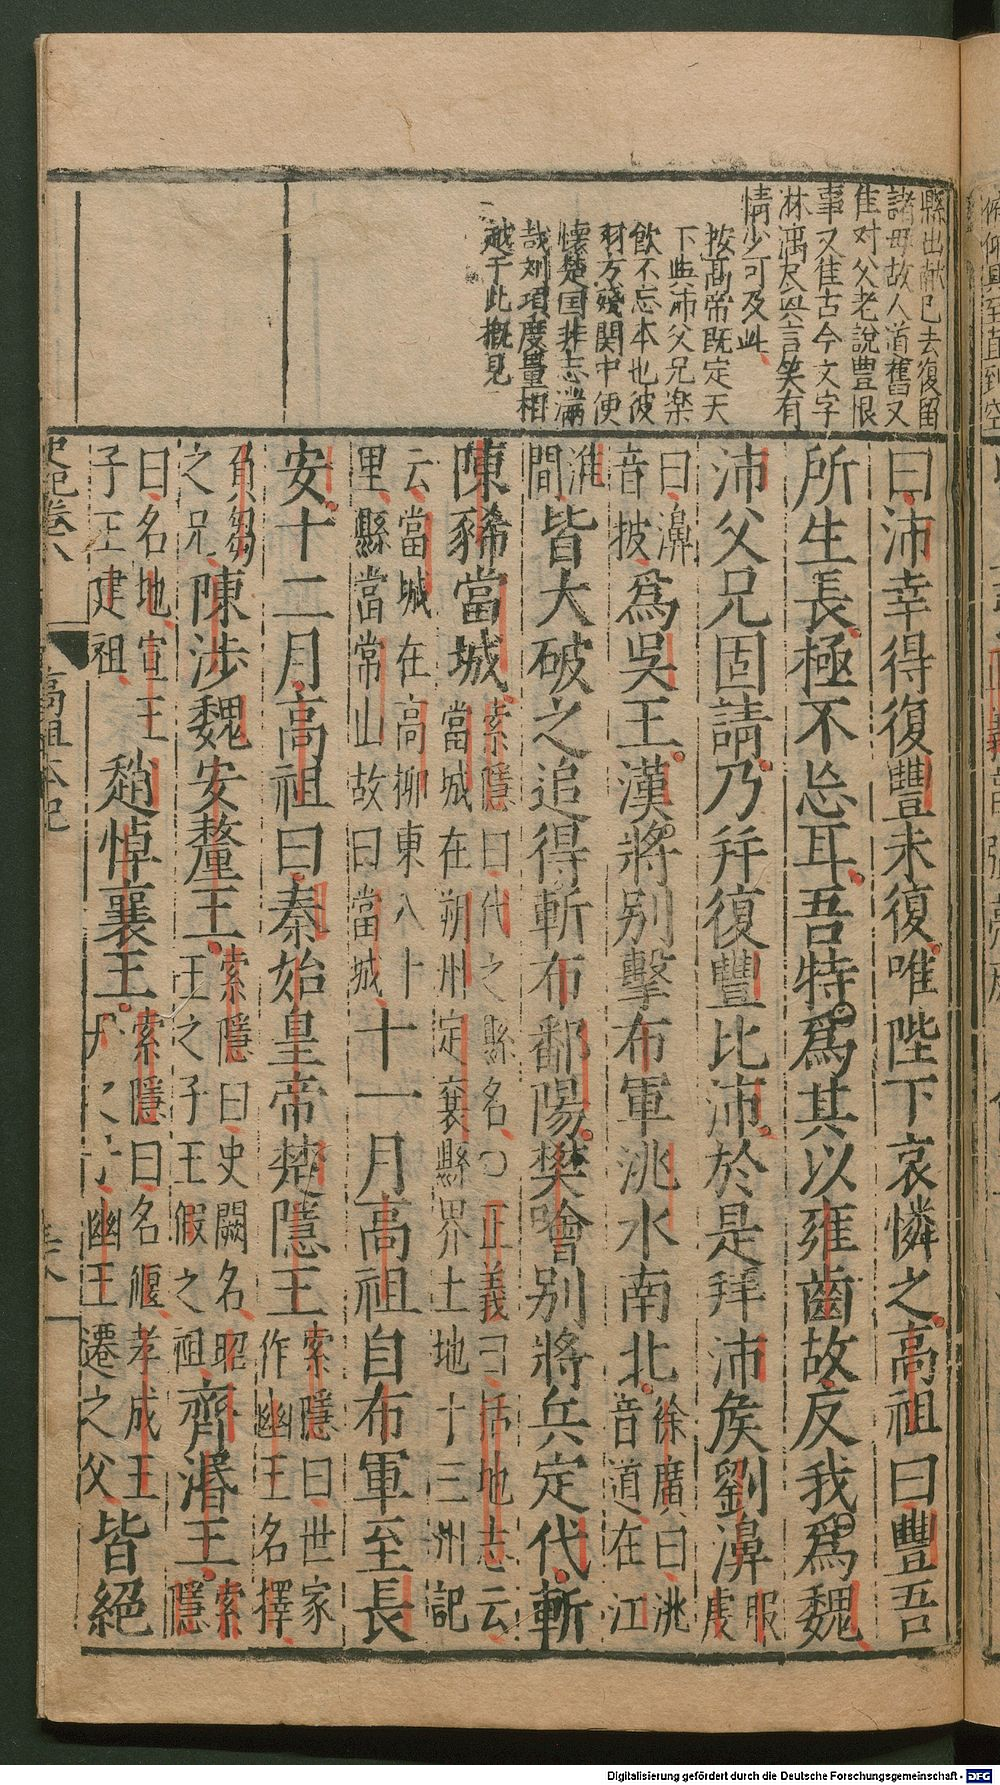 縣出獻已去復留
諸母故人道舊又
隹对父老說豊恨
事又隹古今文字
淋漓尽興言笑有
情少可及此
按髙帝既定天
下與沛父兄楽
飮不忘本也彼
羽方殘関中便
懷楚国非志滿
哉刘項度量相
越于此槪見
曰沛幸得復豐未復唯陛下哀憐之高祖曰豐吾
所生長極不忘耳吾特爲其以雍齒故反我爲魏
沛父兄固請乃幷復豐比沛於是拜沛侯劉濞服虔
曰濞音披爲吳王漢將别擊布軍洮水南北徐廣曰洮音道在江
淮間皆大破之追得斬布鄱陽樊噲别將兵定代斬
陳豨當城索隱曰代之縣名○正義曰括地志云當城在朔州定襄縣界土地十三州記
云當城在高柳東八十里縣當常山故曰當城十一月高祖自布軍至長
安十二月高祖曰秦始皇帝楚隱王索隱曰世家作幽王名擇
負芻之兄陳涉魏安釐王索隱曰史闕名昭王之子王假之祖齊湣王索隱
曰名地宣王子王建祖趙悼襄王索隱曰名偃孝成王幽王遷之父皆絕
史記卷八
高祖本紀
Digitalisierung gefördert durch die Deutsche Forschungsgemeinschaft - DFG